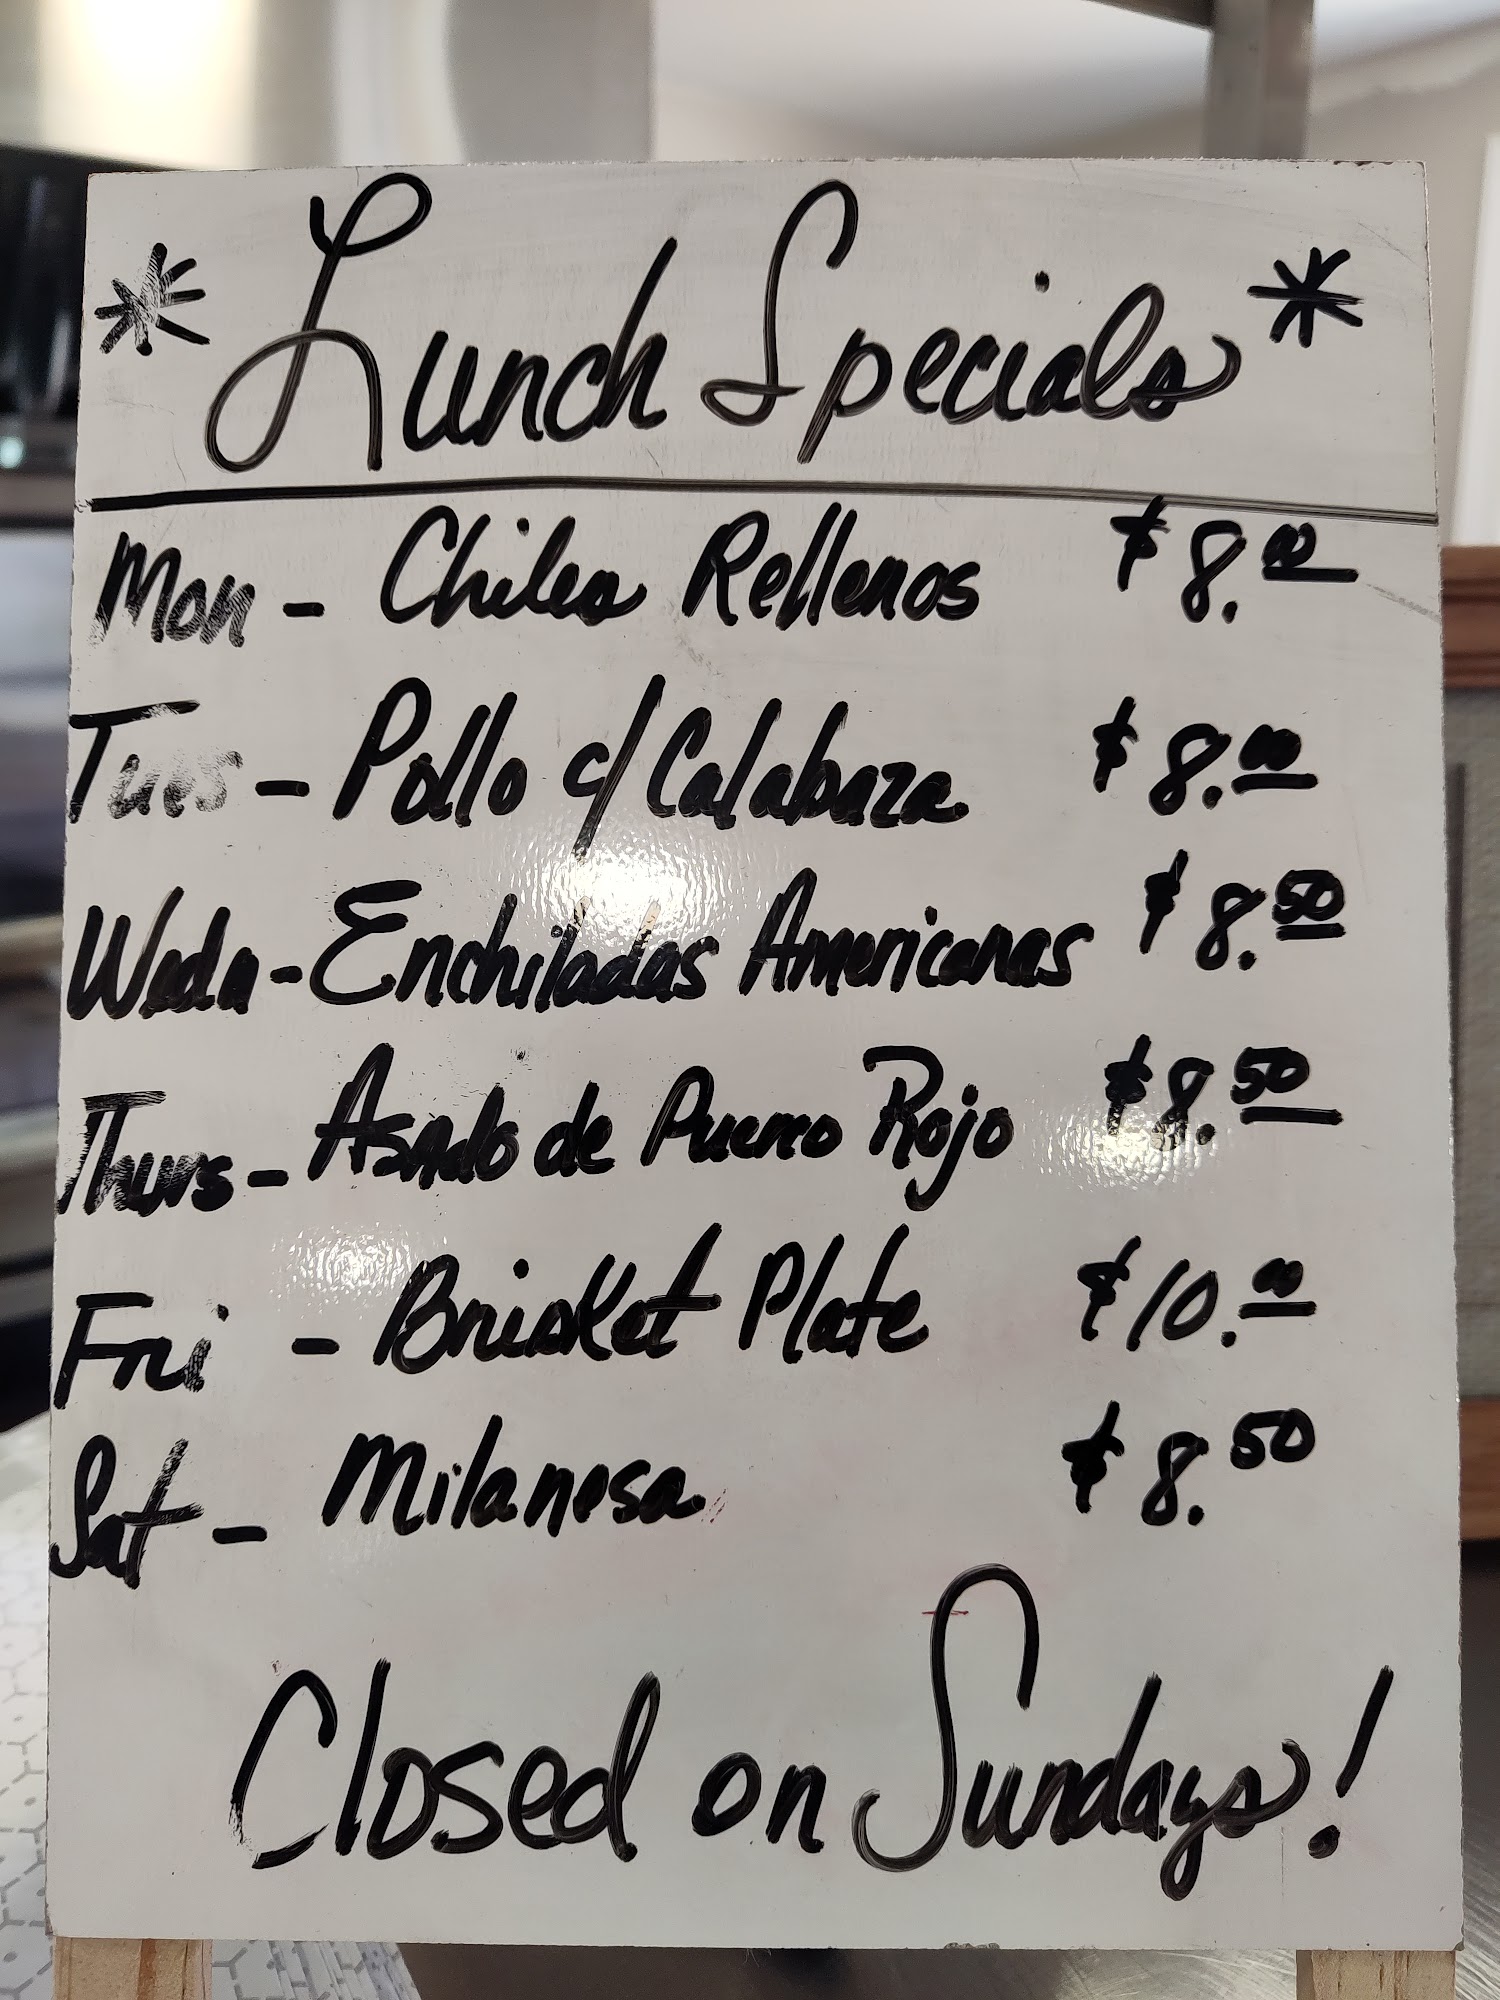 * Lunch Specials *
Mon - Chiles Rellenos $8.00
Tues - Pollo c/ Calabaza $8.00
Weds - Enchiladas Americanas $8.50
Thurs - Asado de Puerco Rojo $8.50
Fri - Brisket Plate $10.00
Sat - Milanesa $8.50
Closed on Sundays!